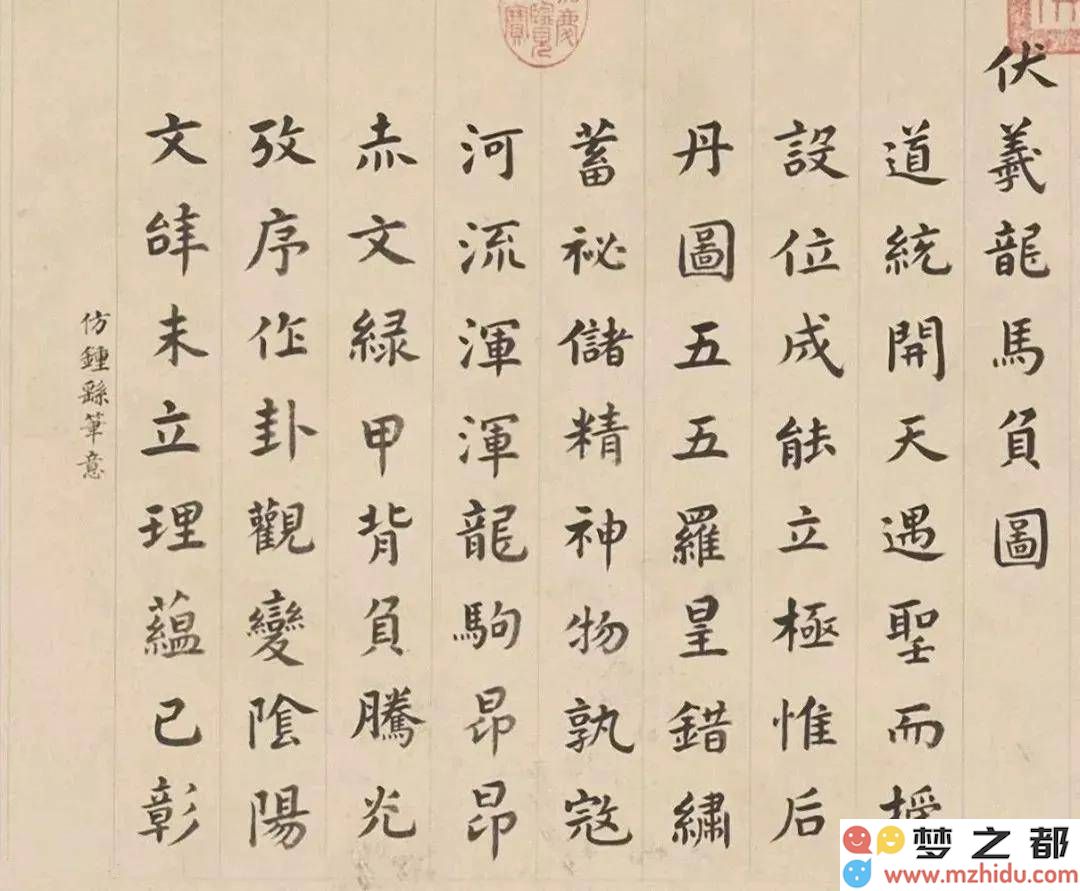 伏羲龍馬負圖
道統開天遇聖而授
設位成能立極惟后
丹圖五五羅皇錯繡
蓄祕儲精神物孰寇
河流渾渾龍駒昂昂
赤文緑甲背負騰光
攷序作卦觀變陰陽
文辝未立理蘊已彰
仿鍾繇筆意
梦之都
www.mzhidu.com